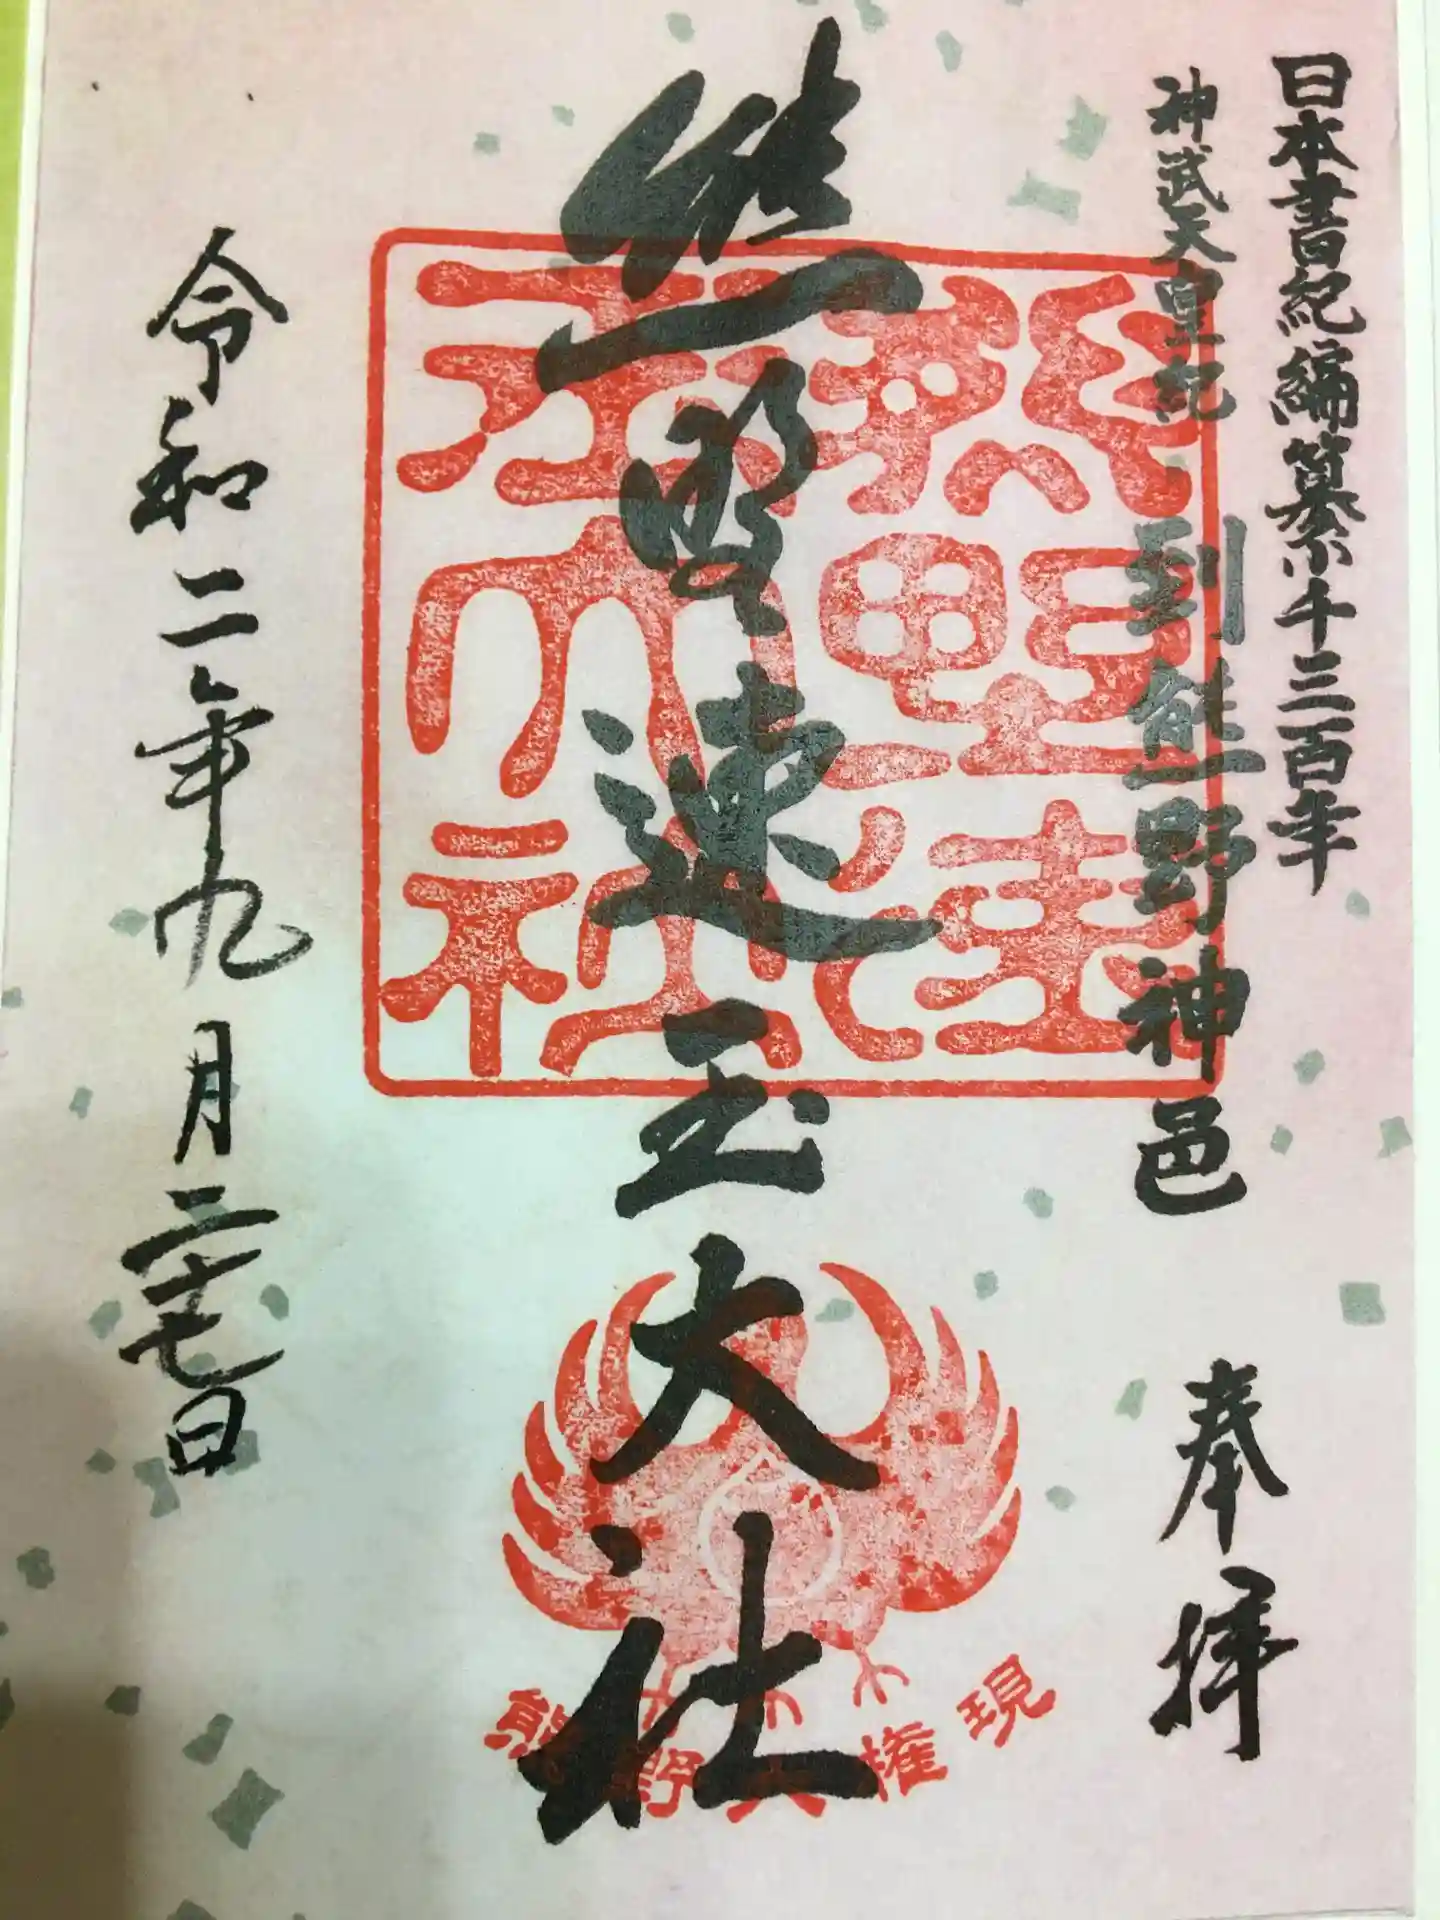 日本書紀編纂千三百年
神武天皇紀・到熊野神邑
奉拝
熊野速玉大社
熊野速玉大社
熊野大権現
令和二年九月二十七日